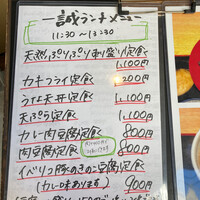 一誠ランチメニュー
11:30〜13:30
天然ぷりぷり刺盛り定食
1,100円
カキフライ定食
1,200円
うな天丼定食
1,100円
天ぷら定食
1,100円
カレー肉豆腐定食
900円
肉豆腐定食
800円
イベリコ豚のきのこ豆腐定食
(カレー味あります) 900円